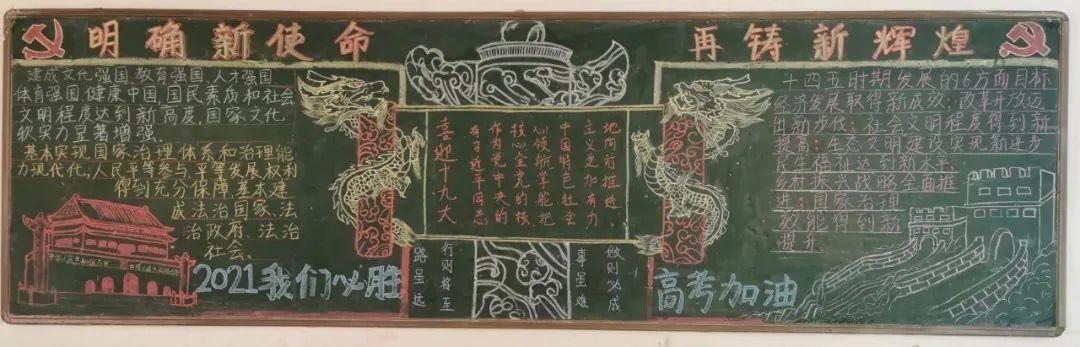 明确新使命
再铸新辉煌
建成文化强国,教育强国,人才强国
体育强国,健康中国,国民素质和社会
文明程度达到新高度,国家文化
软实力显著增强
基本实现国家治理体系和治理能
力现代化;人民平等参与,平等发展权利
得到充分保障 基本建
成法治国家、法
治政府、法治
社会。
2021我们必胜
喜迎十九大
有习近平同志
作为党中央的
核心全党的核
心领航掌舵能把
中国特色社会
主义更加有力
地向前推进。
路虽远
行则将至
事虽难
做则必成
十四五时期发展的6方面目标
经济发展取得新成效;改革开放迈
出新步伐;社会文明程度得到新
提高;生态文明建设实现新进步
民生福祉达到新水平
乡村振兴战略全面推
进;国家治理
效能得到新
提升
高考加油